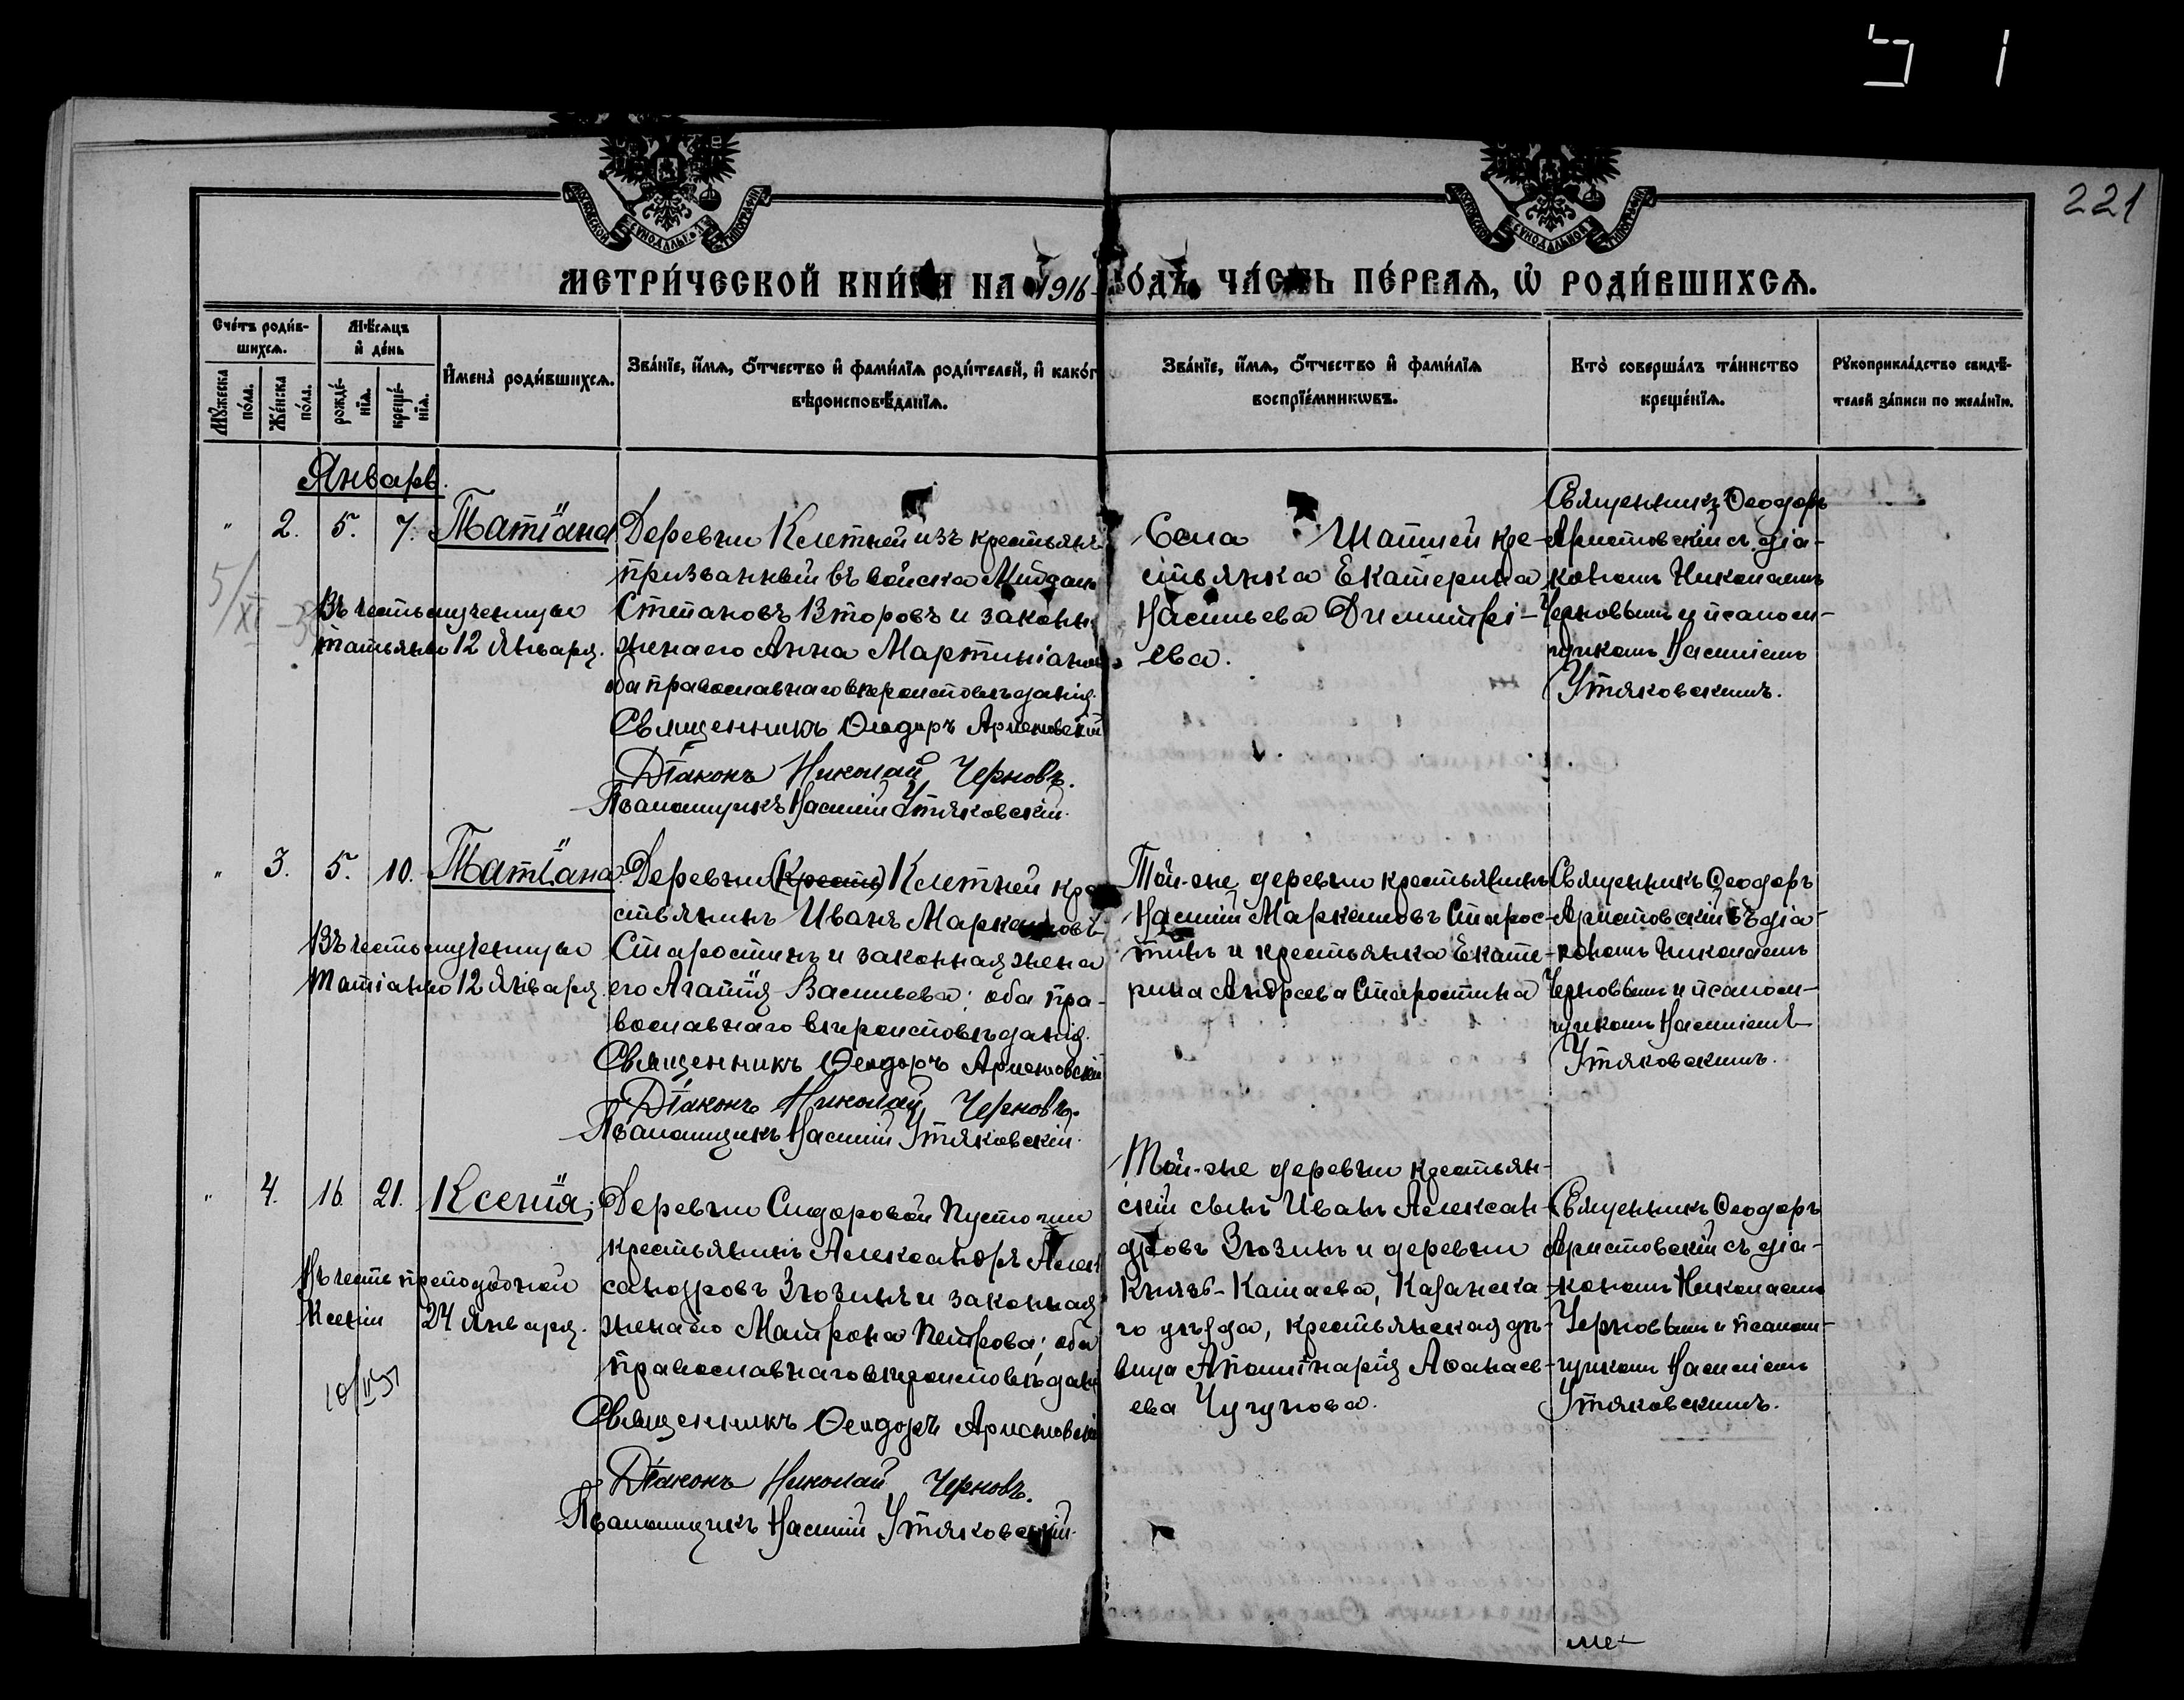 221
МЕТРИ́ЧЕСКОЙ КНИ́ГИ НА 1916 ГО́ДЪ, ЧА́СТЬ ПЕ́РВАЯ, Ѿ РОДИ́ВШИХСЯ.
Сче́тъ роди́в-
шихся.
Мѣ́сяцъ
и҆ де́нь
Мꙋ́жеска
по́ла.
Же́нска
по́ла.
рожде́-
нїѧ.
креще́-
нїѧ.
И҆мена̀ роди́вшихся.
Зва́нїе, и҆́мѧ, ѻ҆́тчество и҆ фами́лїѧ роди́телей, и҆ како́г
вѣроисповѣ́данїѧ.
Зва́нїе, и҆́мѧ, ѻ҆́тчество и҆ фами́лїѧ
воспрїе́мникωвъ.
Кто̀ соверша́лъ та́инство
креще́нїѧ.
Рꙋкоприкла́дство свидѣ́-
телей за́писи по жела́нїю.
Январь.
" 2. 5. 7. Татіана
Въ честь мученицы
Татьяны 12 Января.
Деревни Клетней изъ крестьянъ
призванный въ войска
Степановъ Второвъ и законн
жена его Анна Мартиніанов
оба православнаго вѣроисповѣданія.
Священникъ Ѳеодоръ Аристовскій
Діаконъ Николай Черновъ.
Псаломщикъ Василій Утяковскій.
Села Шапшей кре-
стьянка Екатерина
Васильева Димитрі-
ева.
Священникъ Ѳеодоръ
Аристовскій съ діа-
кономъ Николаемъ
Черновымъ и псалом-
щикомъ Василіемъ
Утяковскимъ.
" 3. 5. 10. Татіана.
Въ честь мученицы
Татіаны 12 Января.
Деревни (Кресть) Клетней кре
стьянинъ Иванъ Маркеловъ
Старостинъ и законная жена
его Агапія Васильева; оба пра-
вославнаго вѣроисповѣданія.
Священникъ Ѳеодоръ Аристовскій
Діаконъ Николай Черновъ.
Псаломщикъ Василій Утяковскій.
Той-же деревни крестьянинъ
Василій Маркеловъ Старос-
тинъ и крестьянка Екате-
рина Андреева Старостина
Священникъ Ѳеодоръ
Аристовскій съ діа-
кономъ Николаемъ
Черновымъ и псалом-
щикомъ Василіемъ
Утяковскимъ.
" 4. 16. 21. Ксенія;
Въ честь преподобной
Ксеніи 24 Января.
Деревни Сидоровой Пустоши
крестьянинъ Александръ Алек
сандровъ Зюзинъ и законная
жена его Матрона Петрова; оба
православнаго вѣроисповѣдані
Священникъ Ѳеодоръ Аристовскі
Діаконъ Николай Черновъ.
Псаломщикъ Василій Утяковскій.
Той-же деревни крестьян-
скій сынъ Иванъ Алексан-
дровъ Зюзинъ и деревни
Князь-Камаева, Казанска-
го уѣзда, крестьянская дѣ-
вица Аполлинарія Аѳанась-
ева Чугунова.
Священникъ Ѳеодоръ
Аристовскій съ діа-
кономъ Николаемъ
Черновымъ и псалом-
щикомъ Василіемъ
Утяковскимъ.